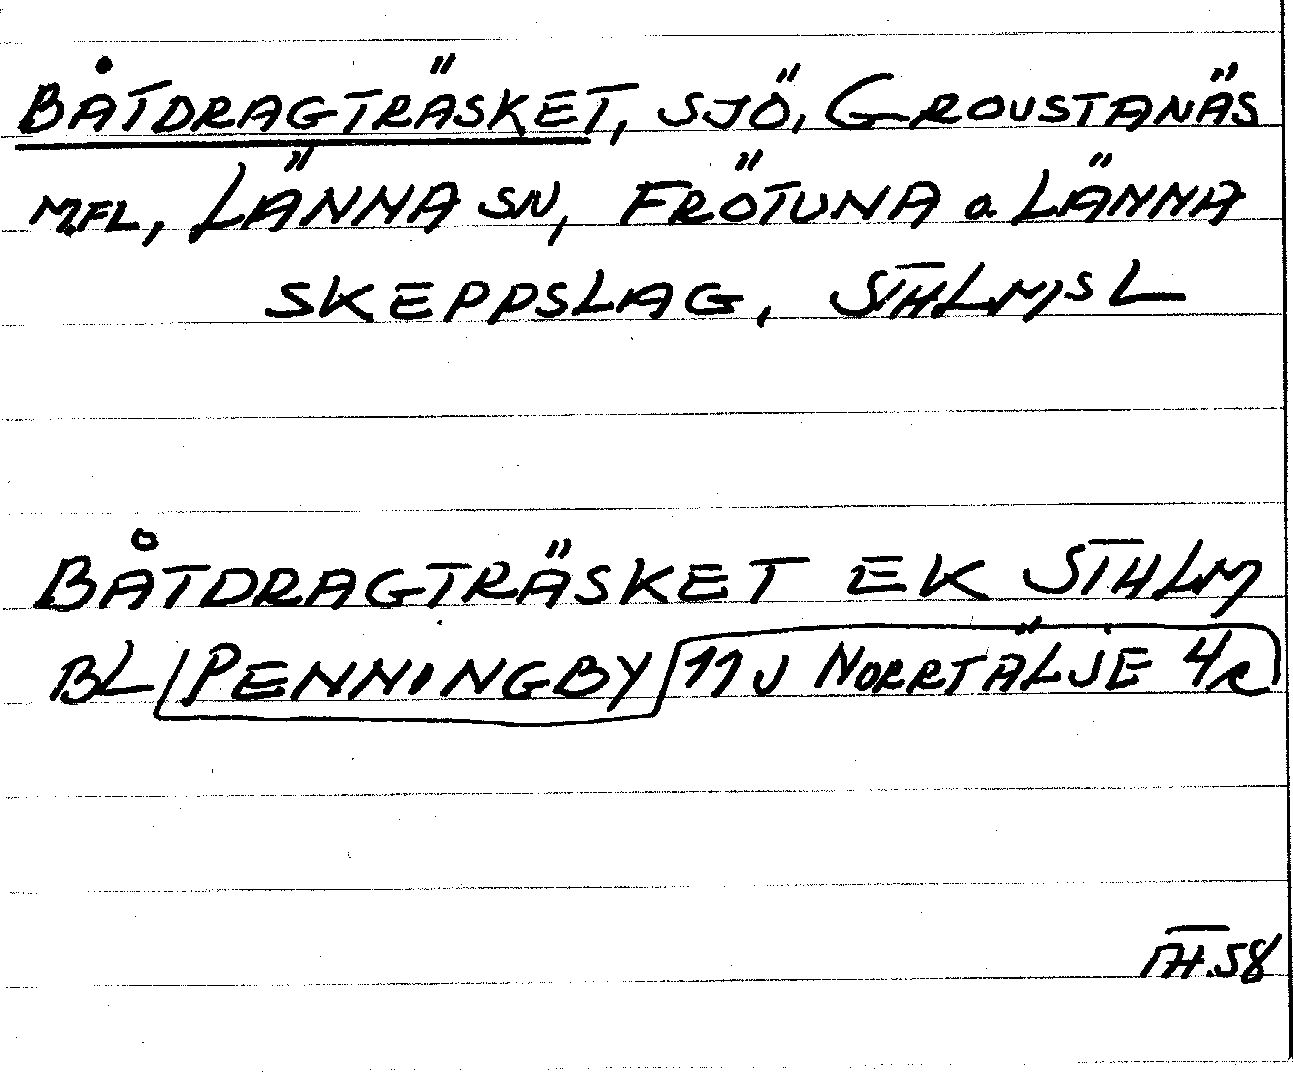 BÅTDRAGTRÄSKET, SJÖ, GROUSTANÄS
MFL, LÄNNA SN, FRÖTUNA o. LÄNNA
SKEPPSLAG, STHLMS L
BÅTDRAGTRÄSKET EK STHLM
BL PENNINGBY 11J NORRTÄLJE 4/c
TH.58